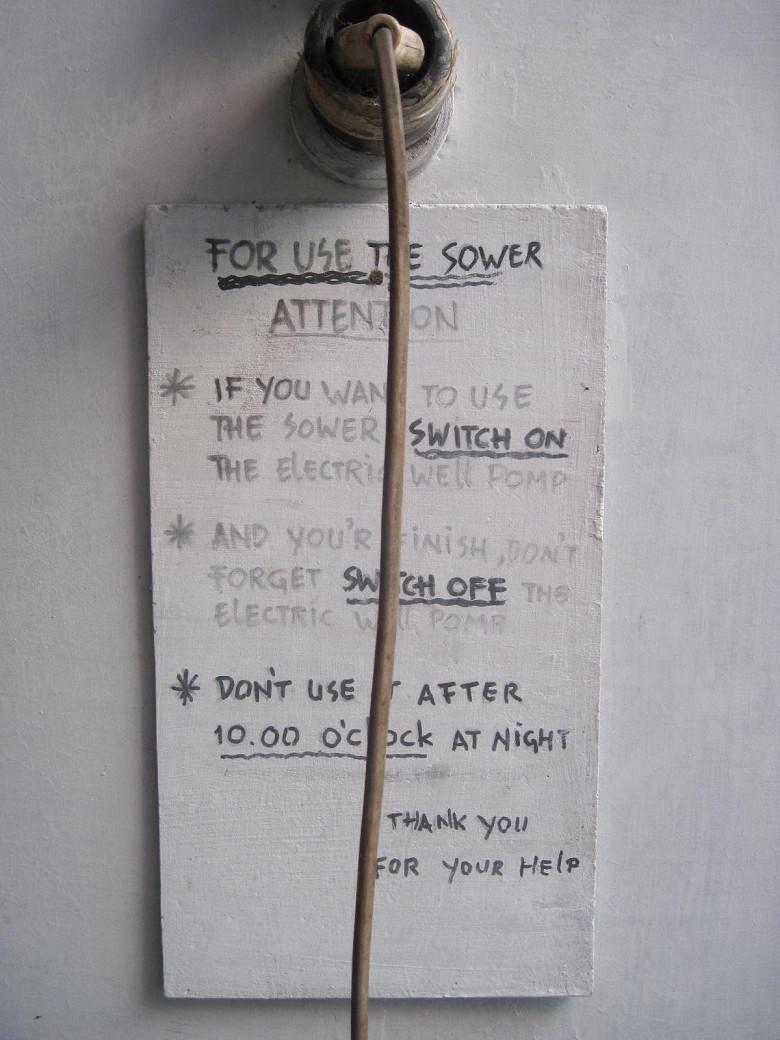 FOR USE THE SOWER
ATTENTION
* IF YOU WANT TO USE
THE SOWER SWITCH ON
THE ELECTRIC WELL POMP
* AND YOU'R FINISH, DON'T
FORGET SWITCH OFF THE
ELECTRIC WELL POMP
* DON'T USE IT AFTER
10.00 O'clock AT NIGHT
THANK YOU
FOR YOUR HELP